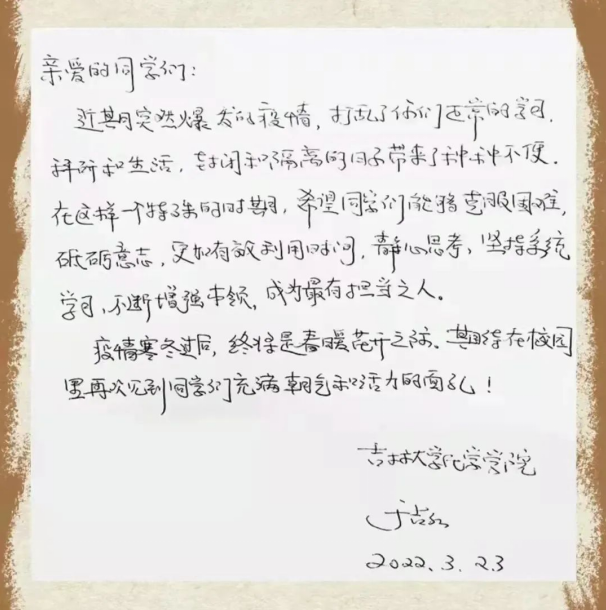 亲爱的同学们：
近期突然爆发的疫情，打乱了你们正常的学习、
科研和生活，封闭和隔离的日子带来了种种不便。
在这样一个特殊的时期，希望同学们能够克服困难，
砥砺意志，更加有效利用时间，静心思考、坚持系统
学习，不断增强本领，成为最有担当之人。
疫情寒冬过后，终将是春暖花开之际。期待在校园
里再次见到同学们充满朝气和活力的面孔！
吉林大学化学学院
于吉红
2022.3.23